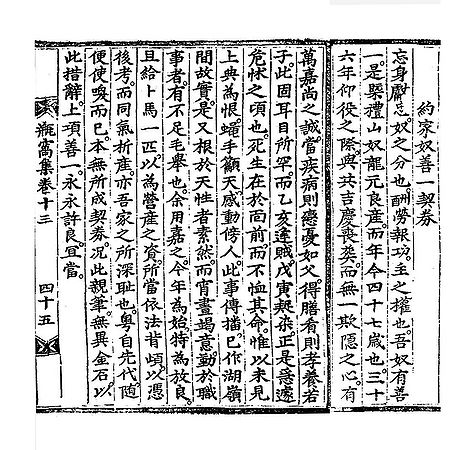 約家奴善一契券
忘身獻忠奴之分也酬勞報功主之權也吾奴有善
一是槩禮山奴龍元良産而年今四十七歲也三十
六年仰役之際與共吉慶喪葬而無一欺隱之心有
萬嘉尚之誠當疾病則憂如父得膳肴則孝養若
子此固耳目所罕而乙亥逢賊戊寅正是遽
危怵之頃也死生在於面前而不恤其命惟以未見
上典為恨手籲天感動傍人此事傳播已作湖嶺
間故實是又根於天性者素然而宵晝竭意動於職
事者有不足毛舉也余用嘉之今年為始特為放良
且給卜馬一匹以為營産之資所當依法背頉以憑
後考而同氣析産亦吾家之所深恥也粤自先代隨
便使喚而已本無所成契券况此親筆無異金石以
此措辭上項善一永永許良宜當
瓶窩集卷十三 四十五